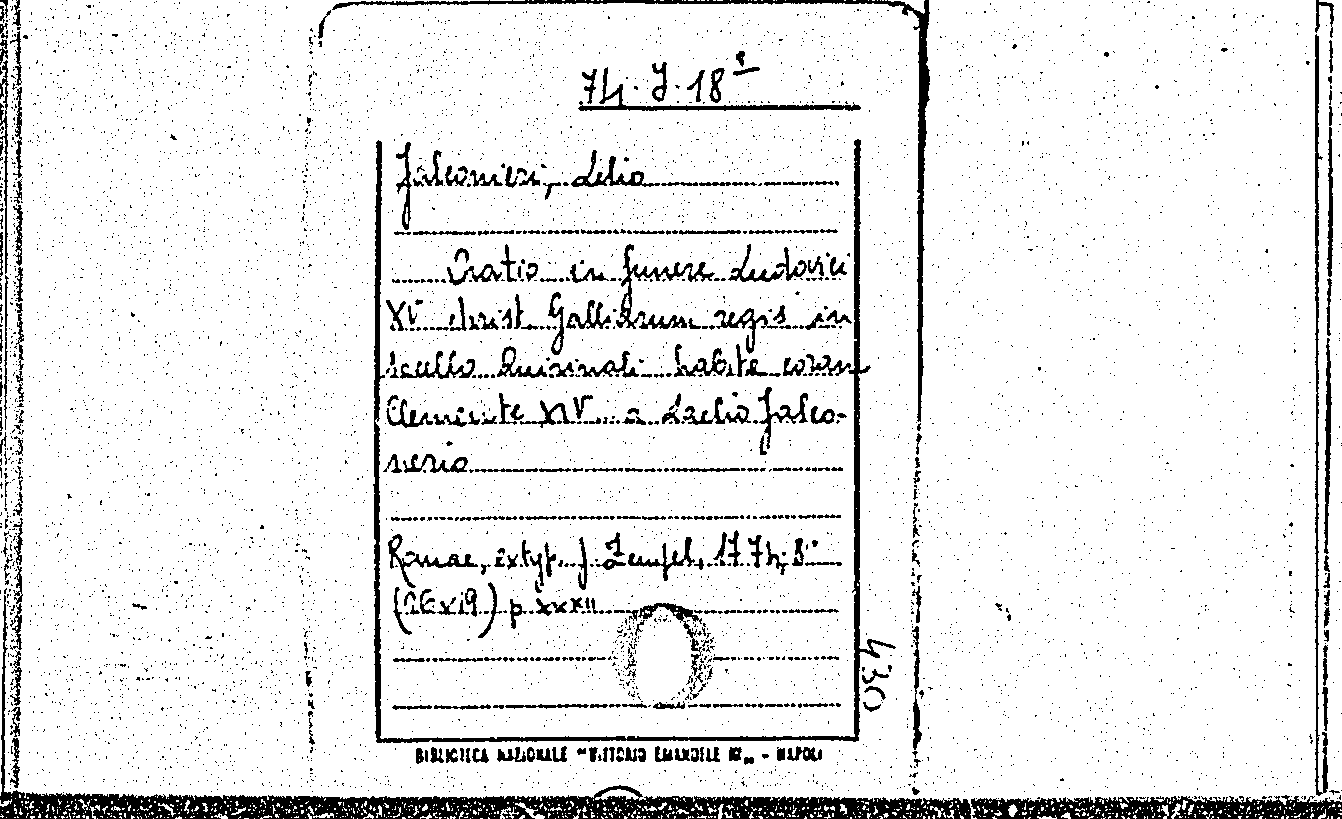 74. J. 18
Falconieri, Lelio
Oratio in funere Ludovici
XV christ. Galliarum regis in
sacello Quirinali habite coram
Clemente XIV... a Laelio Falco-
nerio
Romae, ex typ. J. Zempel, 1774; 8°
(26x19) p. XXXII
430
BIBLIOTECA NAZIONALE "VITTORIO EMANUELE III" - NAPOLI